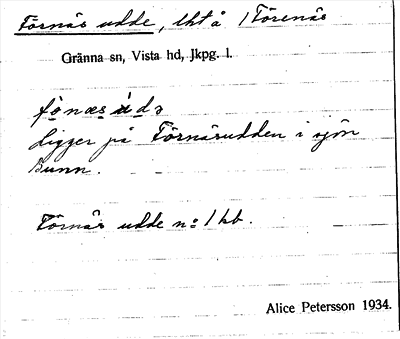 Törnäs udde, lht å 1 Törenäs
Gränna sn, Vista hd, Jkpg. l.
Ligger på Törnäsudden i sjön
Bunn.
Törnäs udde nº 1 hb.
Alice Petersson 1934.